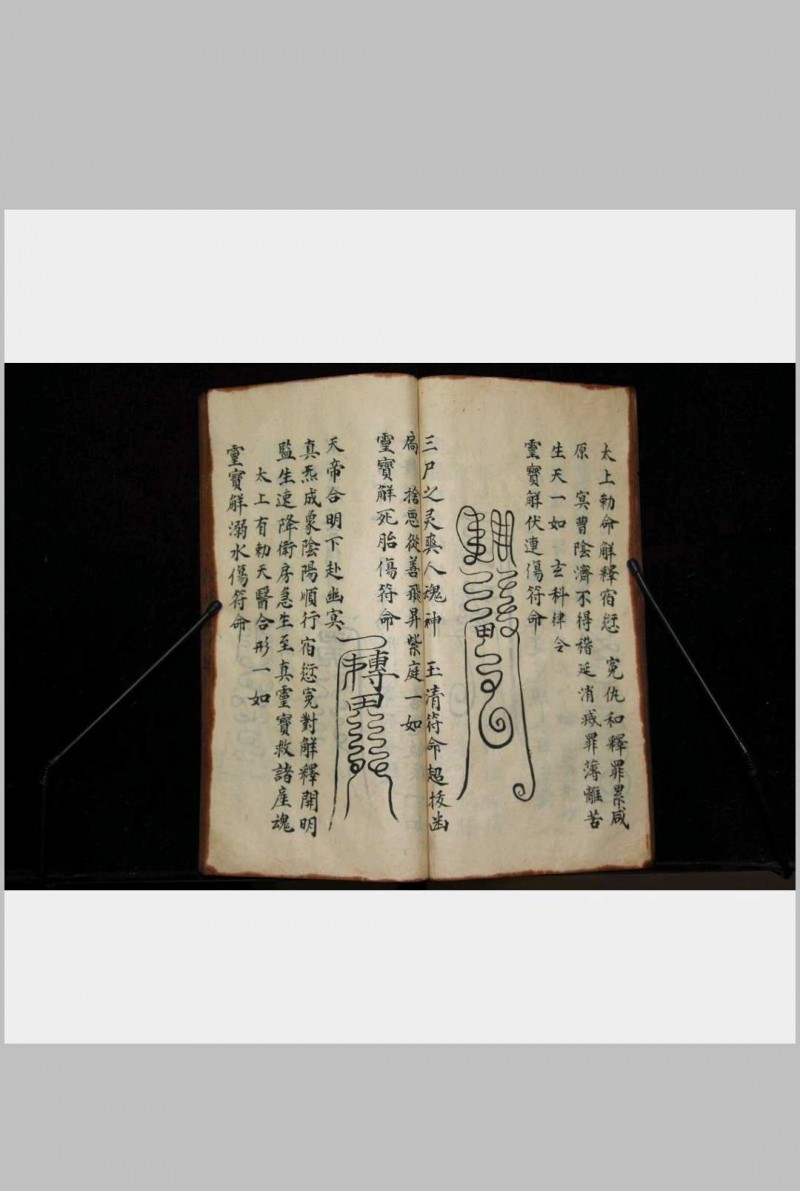 太上勅命解釋宿愆　寃仇和釋罪累咸
原　寅曹陰濟不得稽延消烖罪簿離苦
生天一如　玄科律令
靈寶解伏連傷符命
三尸之灵爽人魂神　玉清符命超拔幽
扃　捨悪從善飛昇紫庭一如
靈寶解死胎傷符命
天帝合明下赴幽冥
真炁成象陰陽順行宿愆寃對解釋開明
監生速降衛房急生至真靈寶救諸産魂
太上有勅天醫合形一如
靈寶解溺水傷符命